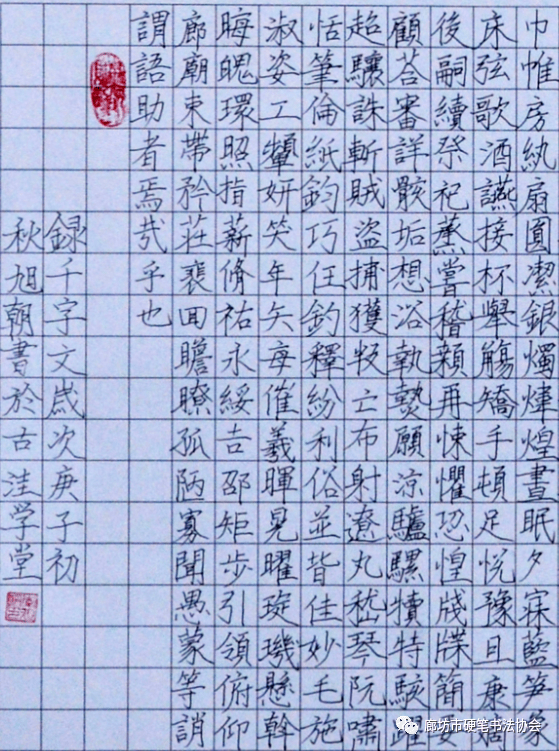 巾帷房紈扇圓潔銀燭煒煌晝眠夕寐藍笋象
床弦歌酒讌接杯舉觴矯手頓足悅豫且康
後嗣續祭祀蒸嘗稽顙再悚懼恐惶牋牒簡要
顧荅審詳骸垢想浴執熱願涼驢騾犢特駭躍
超驤誅斬賊盜捕獲叛亡布射遼丸嵇琴阮嘯
恬筆倫紙鈞巧任釣釋紛利俗並皆佳妙毛施
淑姿工顰妍笑年矢每催羲暉晃曜琁璣懸斡
晦魄環照指薪脩祜永綏吉邵矩步引領俯仰
廊廟束帶矜莊裴回瞻瞭孤陋寡聞愚蒙等誚
謂語助者焉哉乎也
録千字文歲次庚子初
秋旭朝書於古洼学堂
廊坊市硬笔书法协会